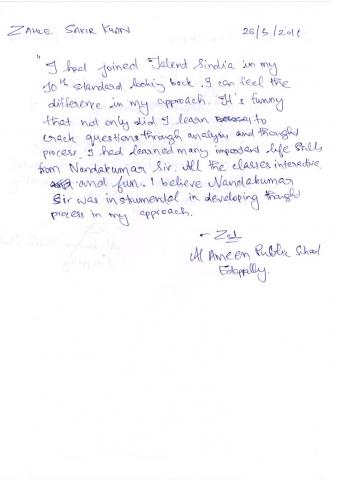 ZAHLE SAKIR KHAN 26/5/2016
"I had joined Talent Sindia in my
10th standard looking back. I can feel the
difference in my approach. It's funny
that not only did I learn to
crack questions through analysis and thought
process. I had learned many important life skills
from Nandakumar Sir. All the classes interactive
and fun. I believe Nandakumar
Sir was instrumental in developing thought
process in my approach.
- Zal
Al Ameen Public School
Edappally.